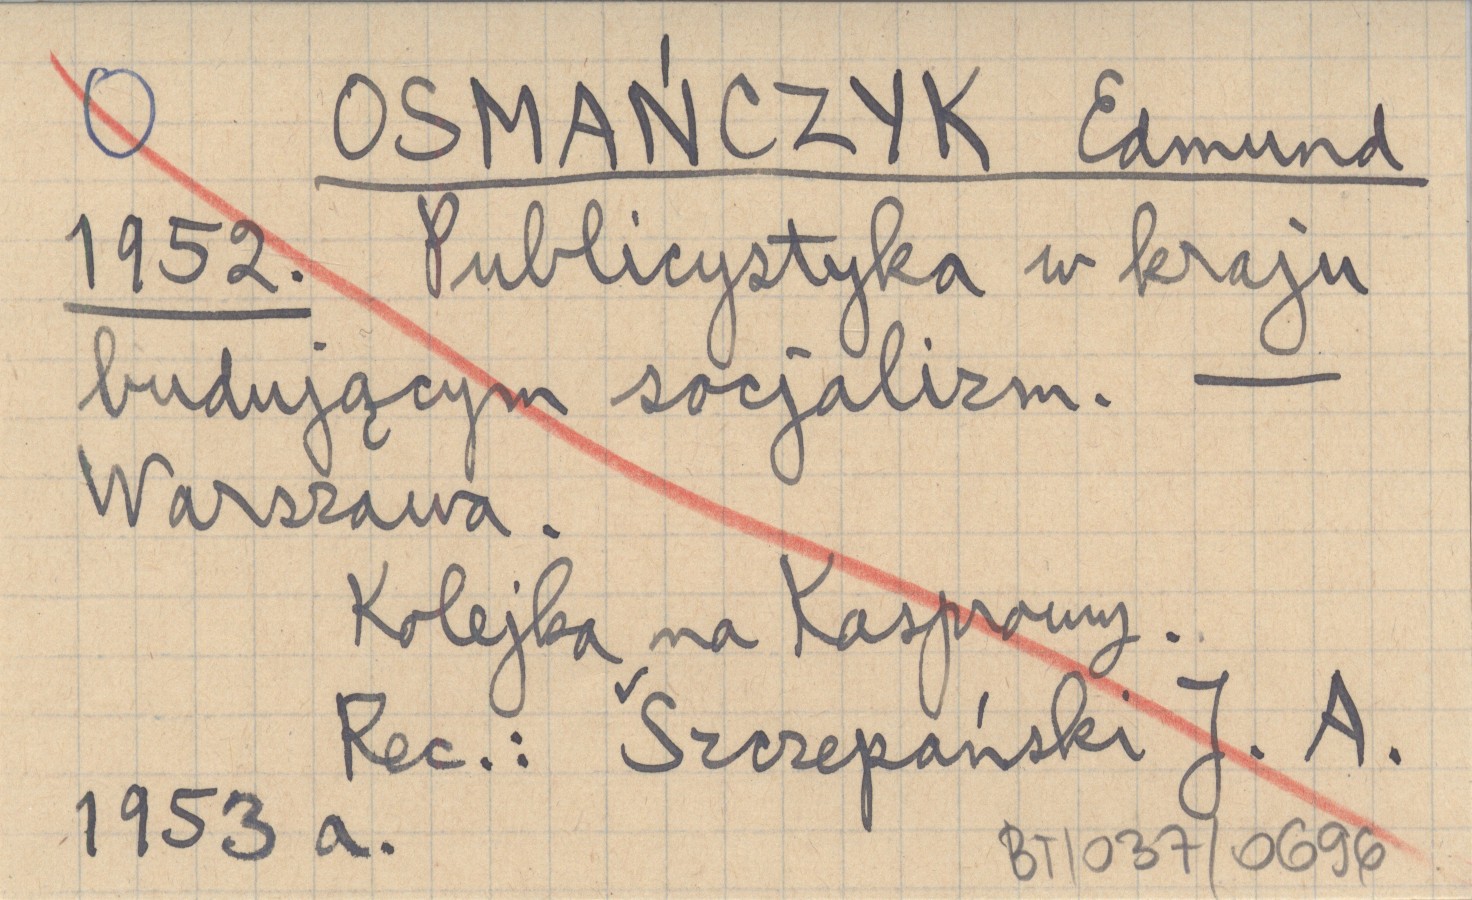 O OSMAŃCZYK Edmund
1952. Publicystyka w kraju
budującym socjalizm. —
Warszawa.
Kolejka na Kasprowy.
Rec.: Szczepański J. A.
1953 a.
BT/037/0696